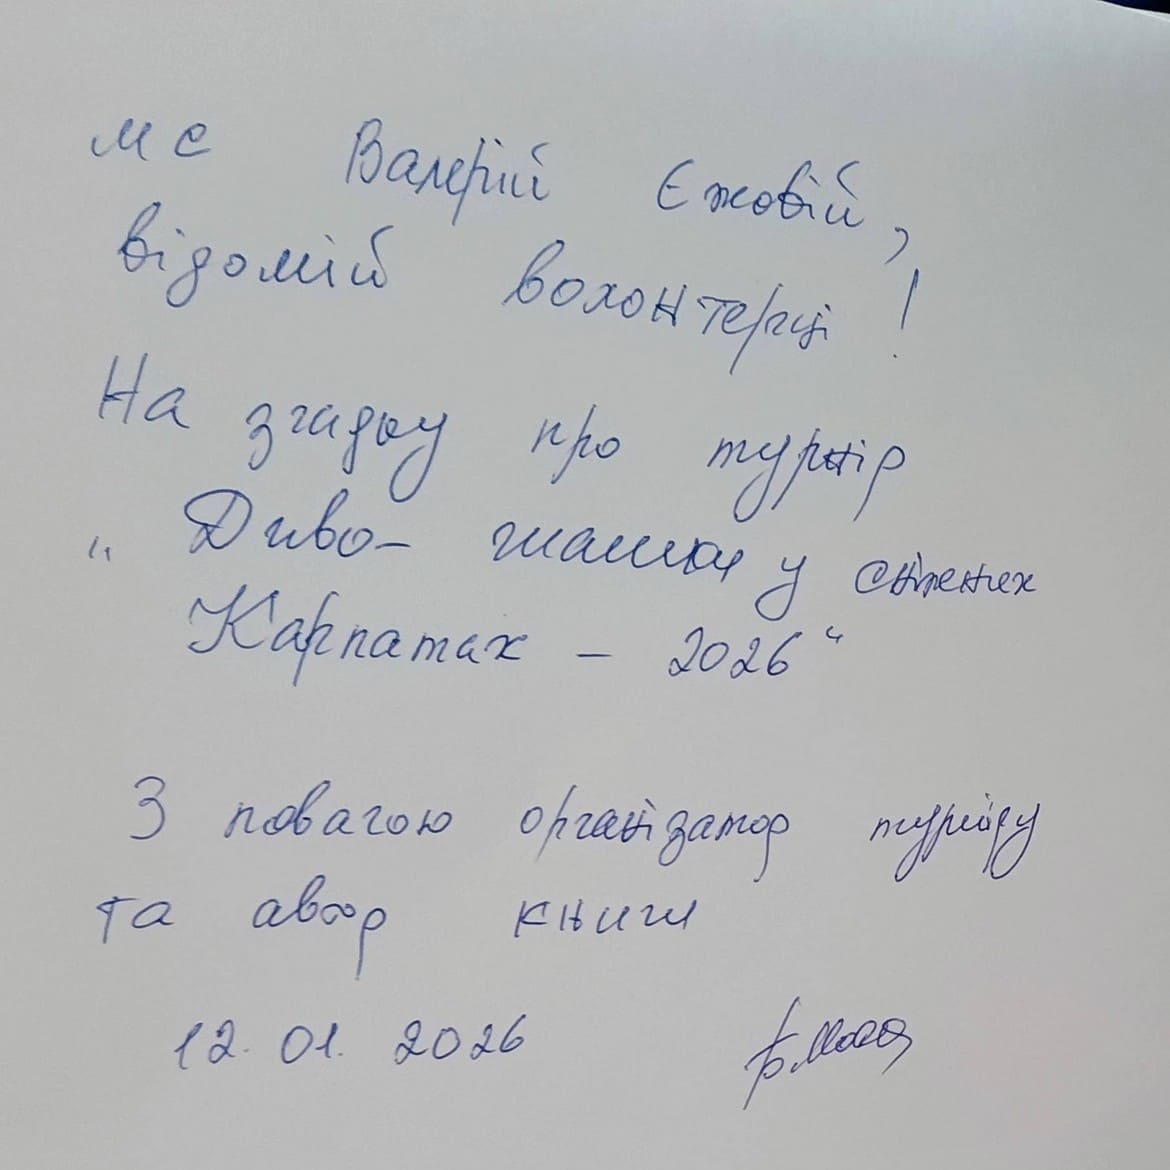 мс Валерій Єжовій,
відомій волонтерці!
На згадку про турнір
„Диво-шашки у сніжних
Карпатах - 2026“
З повагою організатор турніру
та автор книги
12.01.2026